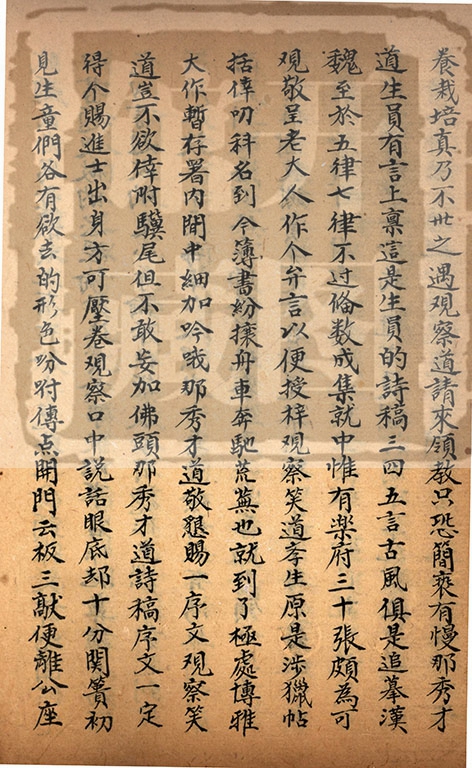 養栽培真乃不世之遇觀察道請來領教只恐簡褻有慢那秀才
道生員有言上稟這是生員的詩稿三四五言古風俱是追摹漢
魏至於五律七律不过俻数成集就中惟有楽府三十張頗為可
觀敬呈老大人作个弁言以便授梓觀察笑道李生原是涉獵帖
括倖叨科名到今簿書紛攘舟車奔馳荒蕪也就到了極處博雅
大作暫存署内間中細加吟哦那秀才道敬懇賜一序文觀察笑
道豈不欲倖附驥尾但不敢妄加佛頭那秀才道詩稿序文一定
得个賜進士出身方可壓卷觀察口中説話眼底却十分関簣初
見生童們各有欲去的形色吩咐傳点開門云板三敲便離公座